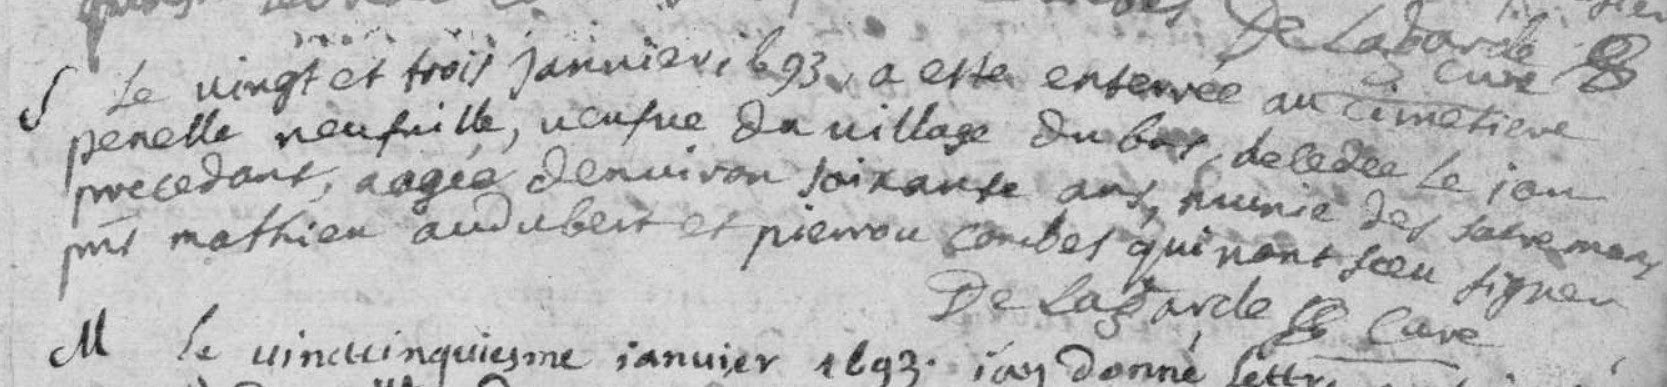 De Lagarde
curé
S Le vingt et trois janvier, 1693, a este enterrée au cimetiere
penelle neufville, veufve du village du bos, decedee le jou
precedant, aagée denviron soixante ans, munie des sacremans
pnts mathieu audubert et pierrou combes qui nont sceu signer
De Lagarde Curé
M Le vinctcinquiesme janvier 1693. jay donné lettre